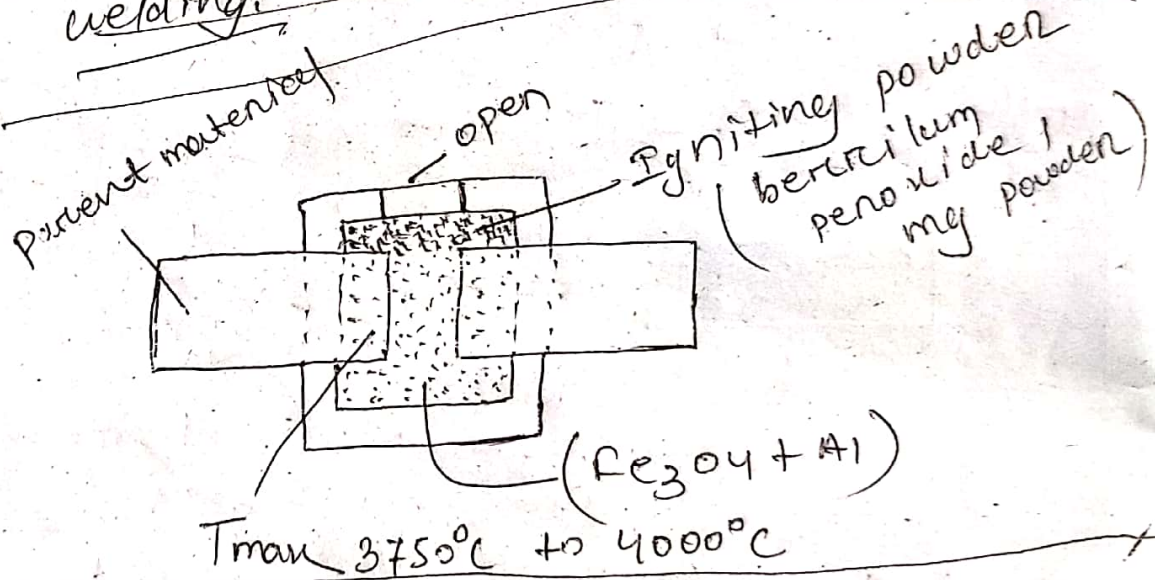 welding.
Parent material
open
Igniting powder
(berrilum
peroxide /
mg powder)
(Fe3O4 + Al)
Tmax 3750°C to 4000°C